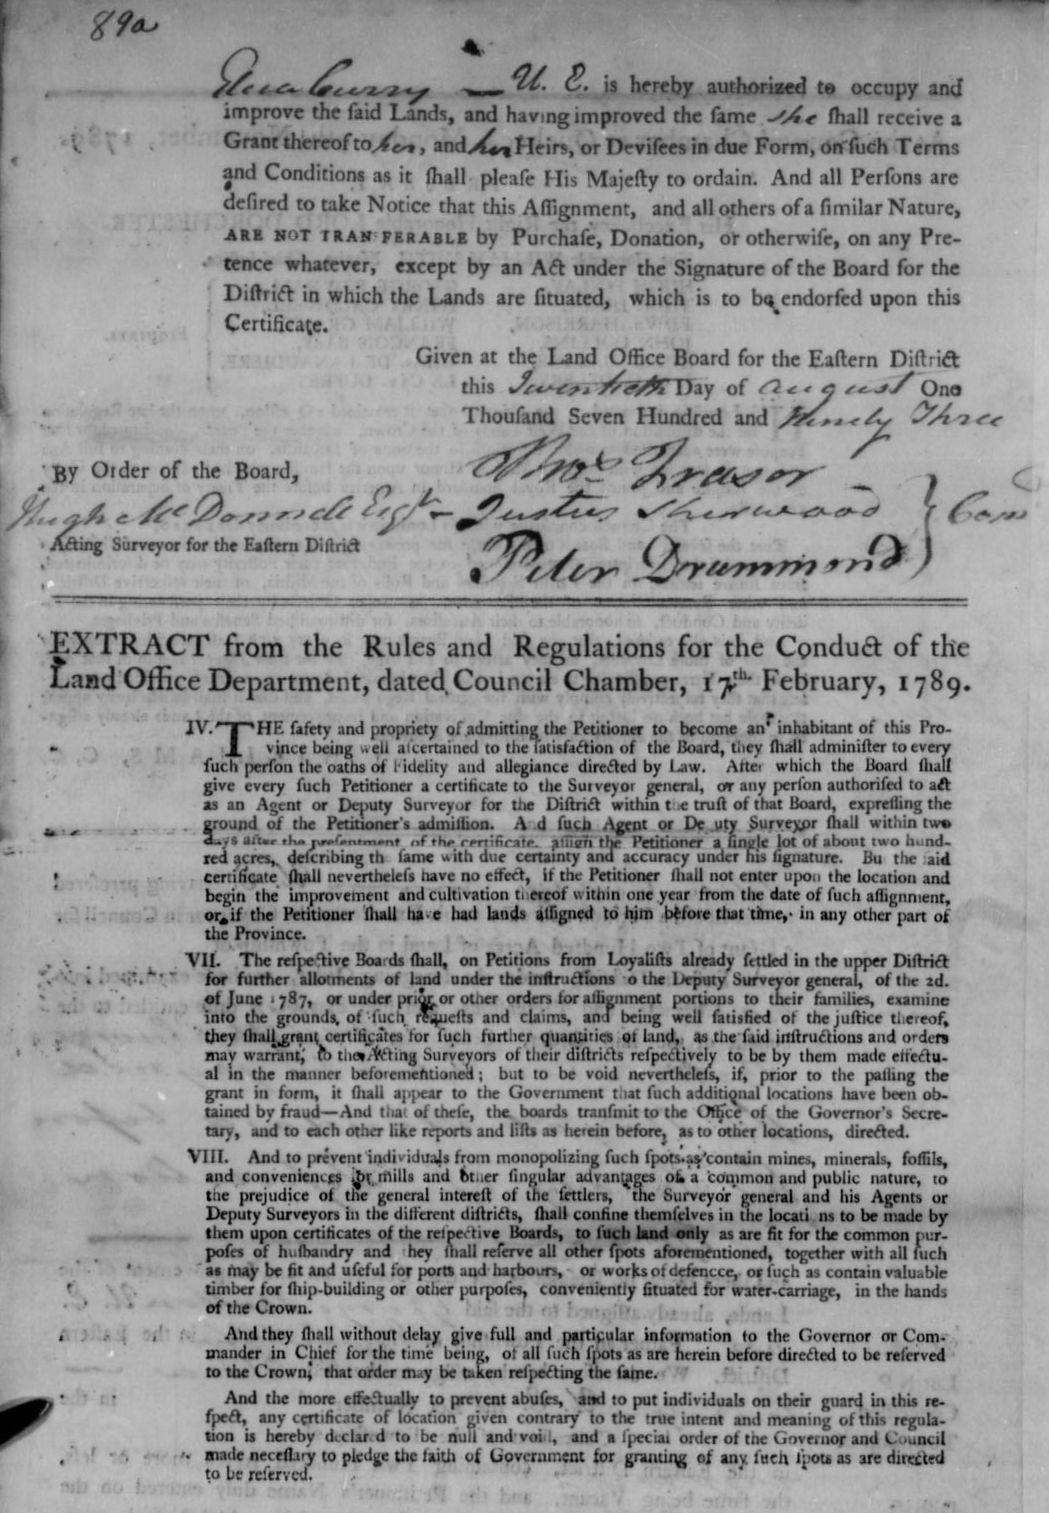 89a
Curry — U. E. is hereby authorized to occupy and
improve the ſaid Lands, and having improved the ſame she ſhall receive a
Grant thereof to her, and her Heirs, or Deviſees in due Form, on ſuch Terms
and Conditions as it ſhall pleaſe His Majeſty to ordain. And all Perſons are
deſired to take Notice that this Aſſignment, and all others of a ſimilar Nature,
ARE NOT TRANSFERABLE by Purchaſe, Donation, or otherwiſe, on any Pre-
tence whatever, except by an Act under the Signature of the Board for the
Diſtrict in which the Lands are ſituated, which is to be endorſed upon this
Certificate.
Given at the Land Office Board for the Eaſtern Diſtrict
this Twentieth Day of August One
Thouſand Seven Hundred and Ninety Three
By Order of the Board,
Thos. Fraser
Hugh McDonnell Esqr. – Justus Sherwood } Com
Acting Surveyor for the Eaſtern Diſtrict
Peter Drummond
EXTRACT from the Rules and Regulations for the Conduct of the
Land Office Department, dated Council Chamber, 17th. February, 1789.
IV. THE ſafety and propriety of admitting the Petitioner to become an inhabitant of this Pro-
vince being well aſcertained to the ſatisfaction of the Board, they ſhall adminiſter to every
ſuch perſon the oaths of Fidelity and allegiance directed by Law. After which the Board ſhall
give every ſuch Petitioner a certificate to the Surveyor general, or any perſon authoriſed to act
as an Agent or Deputy Surveyor for the Diſtrict within the truſt of that Board, expreſſing the
ground of the Petitioner's admiſſion. And ſuch Agent or Deputy Surveyor ſhall within two
days after the preſentment of the certificate, aſſign the Petitioner a ſingle lot of about two hund-
red acres, deſcribing the ſame with due certainty and accuracy under his ſignature. But the ſaid
certificate ſhall nevertheleſs have no effect, if the Petitioner ſhall not enter upon the location and
begin the improvement and cultivation thereof within one year from the date of ſuch aſſignment,
or if the Petitioner ſhall have had lands aſſigned to him before that time, in any other part of
the Province.
VII. The reſpective Boards ſhall, on Petitions from Loyaliſts already ſettled in the upper Diſtrict
for further allotments of land under the inſtructions to the Deputy Surveyor general, of the 2d.
of June 1787, or under prior or other orders for aſſignment portions to their families, examine
into the grounds of ſuch requeſts and claims, and being well ſatisfied of the juſtice thereof,
they ſhall grant certificates for ſuch further quantities of land, as the ſaid inſtructions and orders
may warrant, to the Acting Surveyors of their diſtricts reſpectively to be by them made effectu-
al in the manner beforementioned; but to be void nevertheleſs, if, prior to the paſſing the
grant in form, it ſhall appear to the Government that ſuch additional locations have been ob-
tained by fraud—And that of theſe, the boards tranſmit to the Office of the Governor's Secre-
tary, and to each other like reports and liſts as herein before, as to other locations, directed.
VIII. And to prevent individuals from monopolizing ſuch ſpots as contain mines, minerals, foſſils,
and conveniences for mills and other ſingular advantages of a common and public nature, to
the prejudice of the general intereſt of the ſettlers, the Surveyor general and his Agents or
Deputy Surveyors in the different diſtricts, ſhall confine themſelves in the locations to be made by
them upon certificates of the reſpective Boards, to ſuch land only as are fit for the common pur-
poſes of huſbandry and they ſhall reſerve all other ſpots aforementioned, together with all ſuch
as may be fit and uſeful for ports and harbours, or works of defencce, or ſuch as contain valuable
timber for ſhip-building or other purpoſes, conveniently ſituated for water-carriage, in the hands
of the Crown.
And they ſhall without delay give full and particular information to the Governor or Com-
mander in Chief for the time being, of all ſuch ſpots as are herein before directed to be reſerved
to the Crown, that order may be taken reſpecting the ſame.
And the more effectually to prevent abuſes, and to put individuals on their guard in this re-
ſpect, any certificate of location given contrary to the true intent and meaning of this regula-
tion is hereby declared to be null and void, and a ſpecial order of the Governor and Council
made neceſſary to pledge the faith of Government for granting of any ſuch ſpots as are directed
to be reſerved.